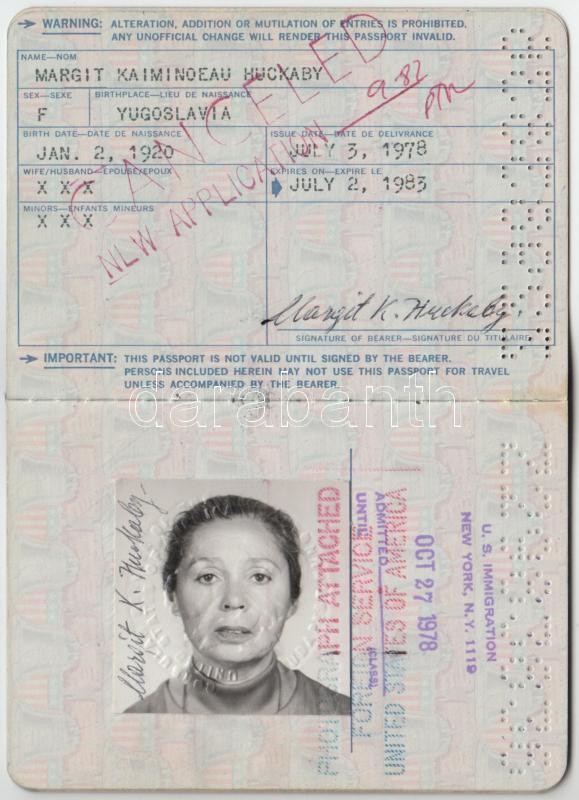 WARNING: ALTERATION, ADDITION OR MUTILATION OF ENTRIES IS PROHIBITED.
ANY UNOFFICIAL CHANGE WILL RENDER THIS PASSPORT INVALID.
NAME—NOM
MARGIT KAIMINOEAU HUCKABY
SEX—SEXE
BIRTHPLACE—LIEU DE NAISSANCE
F
YUGOSLAVIA
BIRTH DATE—DATE DE NAISSANCE
ISSUE DATE—DATE DE DELIVRANCE
JAN. 2, 1920
JULY 3, 1978
WIFE/HUSBAND—EPOUSE/EPOUX
EXPIRES ON—EXPIRE LE
X X X
JULY 2, 1983
MINORS—ENFANTS MINEURS
X X X
CANCELED
NEW APPLICATION
9-82
Margit K. Huckaby.
SIGNATURE OF BEARER—SIGNATURE DU TITULAIRE
IMPORTANT: THIS PASSPORT IS NOT VALID UNTIL SIGNED BY THE BEARER.
PERSONS INCLUDED HEREIN MAY NOT USE THIS PASSPORT FOR TRAVEL
UNLESS ACCOMPANIED BY THE BEARER.
darabanth
Margit K. Huckaby
U. S. IMMIGRATION
NEW YORK, N.Y. 1119
OCT 27 1978
ADMITTED
UNTIL
(CLASS)
PHOTOGRAPH ATTACHED
FOREIGN SERVICE
UNITED STATES OF AMERICA